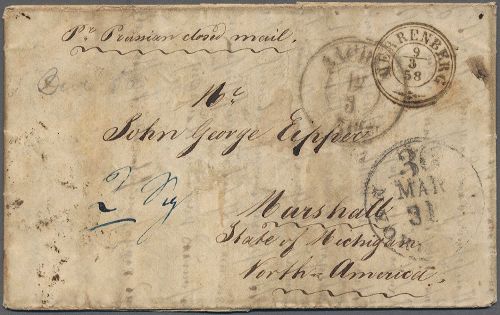 Pr Prussian closed mail.
HERRENBERG
9
3
58
AACHEN
12
3
Mr
John George Eppler
30
MAR
31
2
Marshall
State of Michigan
North-America.